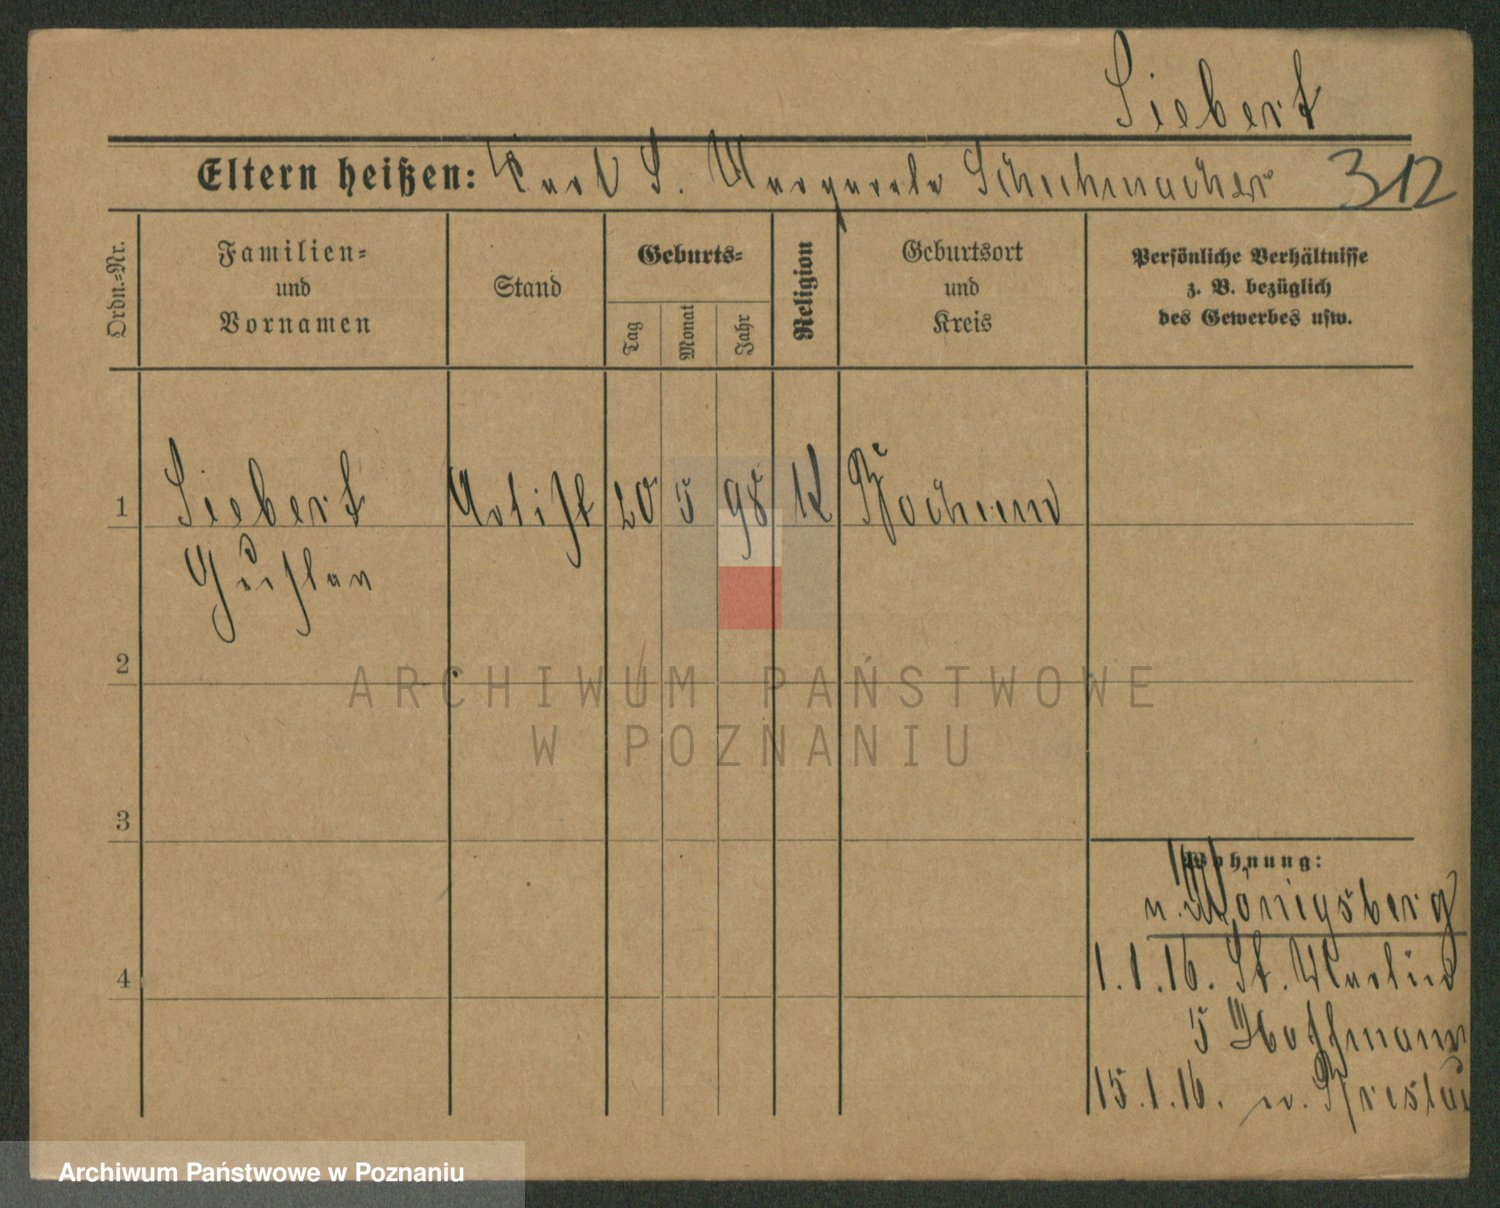 Siebert
Eltern heißen: Carl S. Margarete Schuhmacher 312
Ordn.-Nr.
Familien-
und
Vornamen
Stand
Geburts-
Tag
Monat
Jahr
Religion
Geburtsort
und
Kreis
Persönliche Verhältnisse
z. B. bezüglich
des Gewerbes usw.
1 Siebert Artist 20 5 98 K Bochum
Gustav
2
ARCHIWUM PAŃSTWOWE
W POZNANIU
3
Wohnung:
v. Königsberg
4
1.1.16. St. Martin
5 Hoffmann
15.1.16. n. Breslau
Archiwum Państwowe w Poznaniu